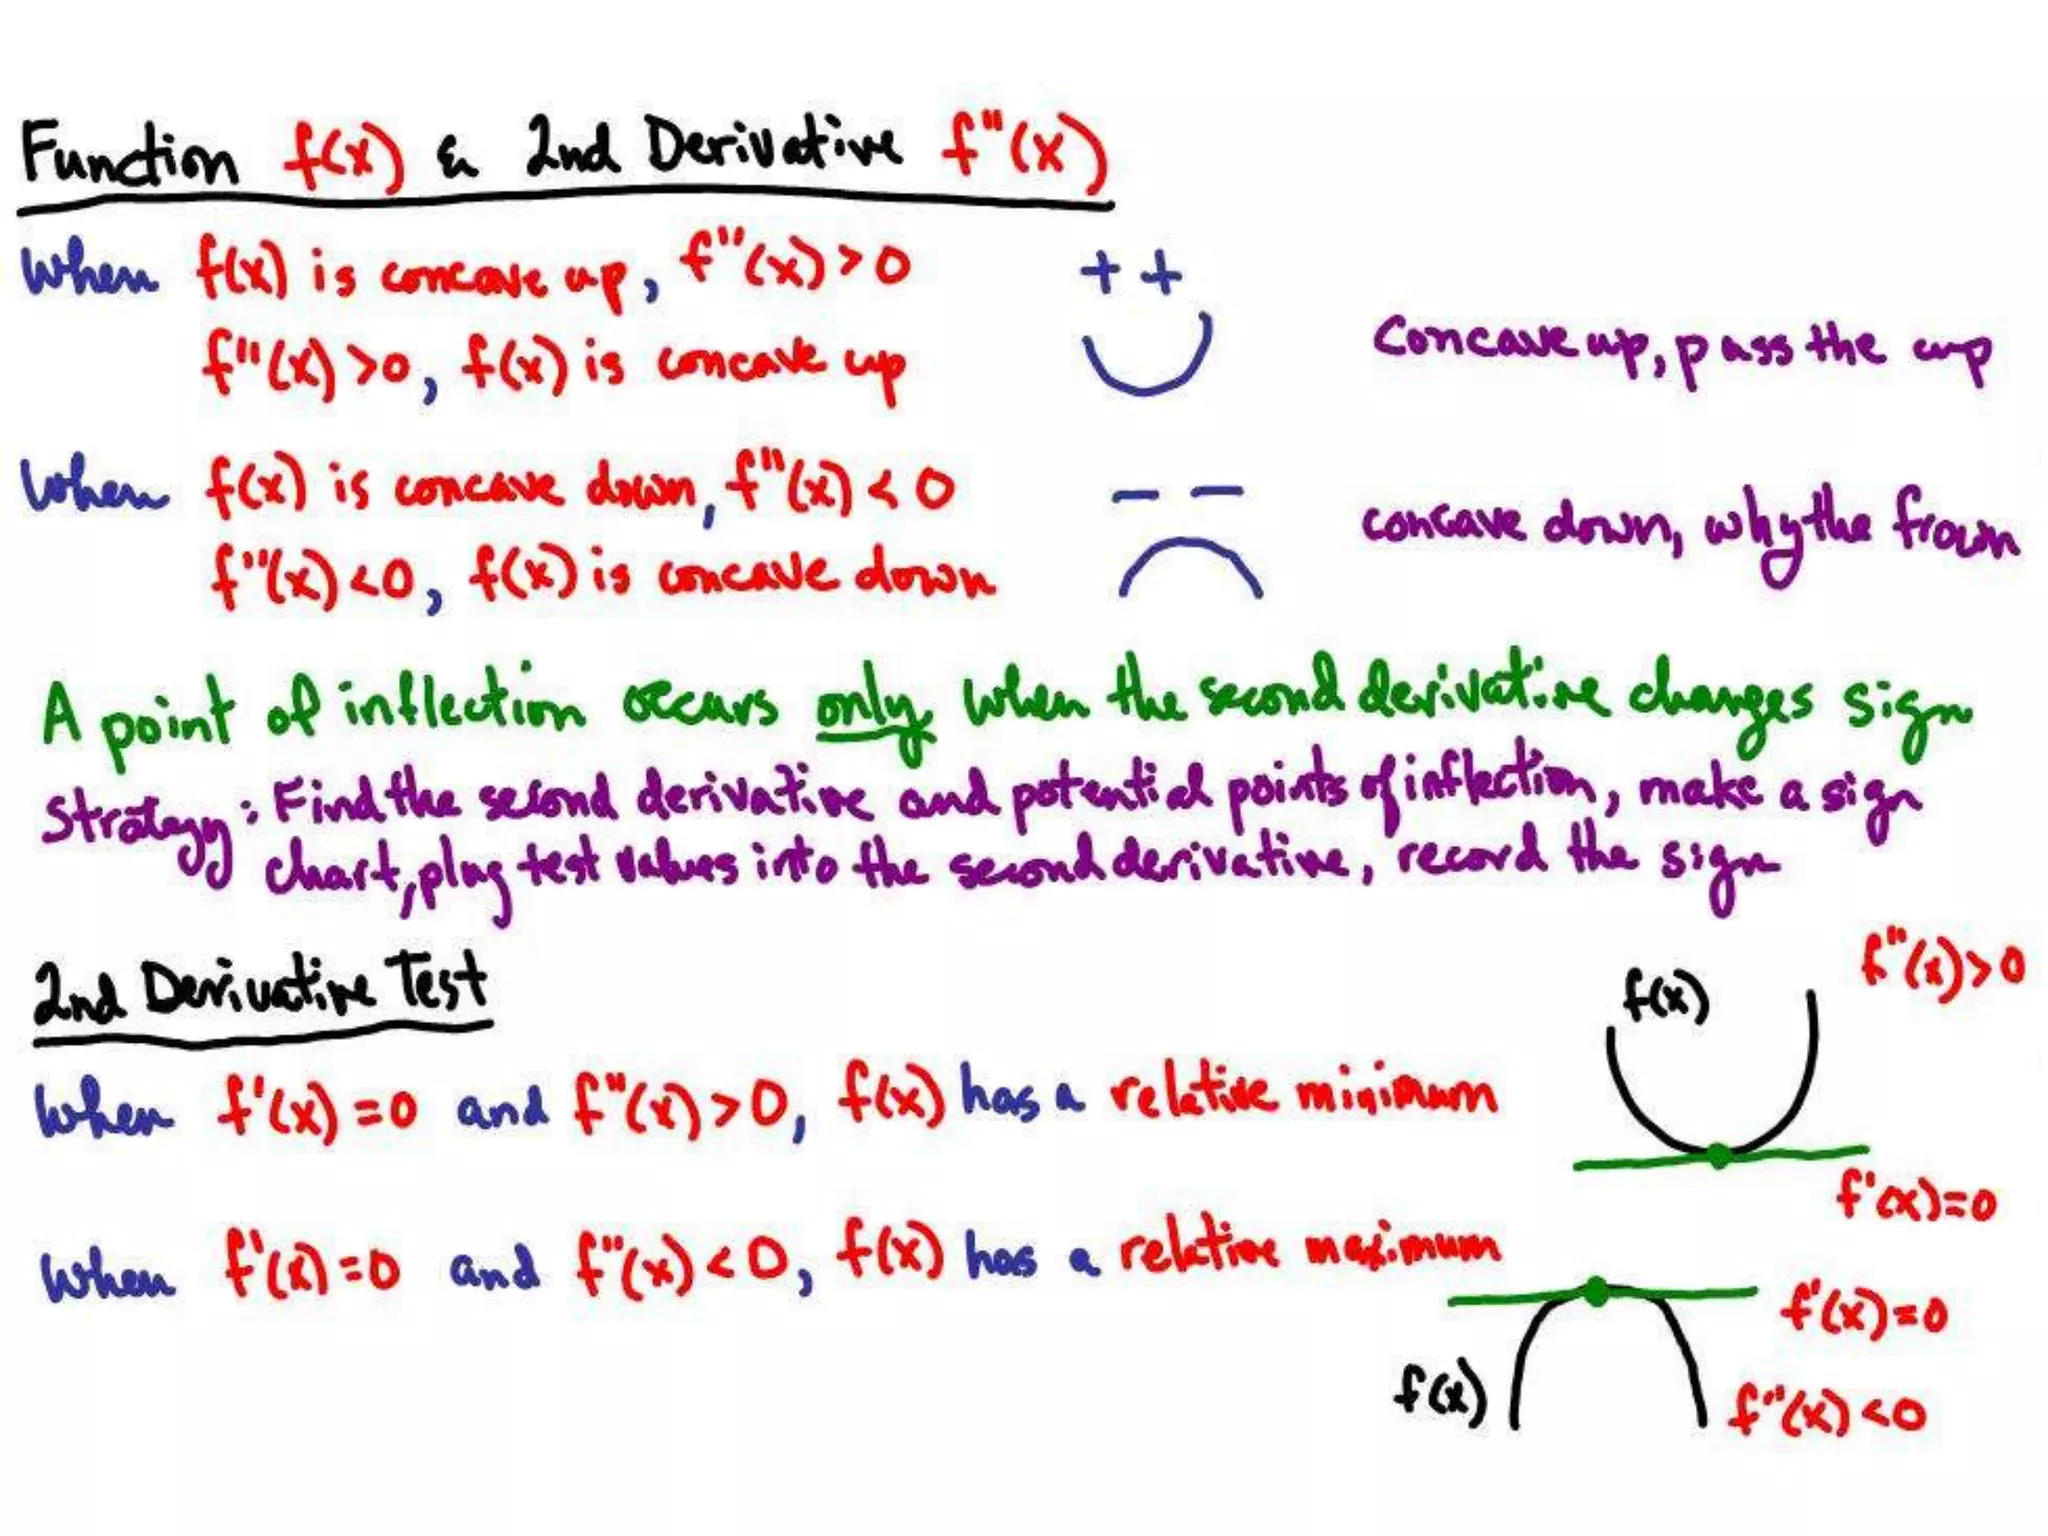 Function f(x) & 2nd Derivative f"(x)
When f(x) is concave up, f"(x) > 0
+ +
f"(x) >0, f(x) is concave up
Concave up, pass the cup
When f(x) is concave down, f"(x) < 0
— —
concave down, why the frown
f"(x) <0, f(x) is concave down
A point of inflection occurs only when the second derivative changes sign
Strategy: Find the second derivative and potential points of inflection, make a sign
chart, plug test values into the second derivative, record the sign
2nd Derivative Test
f(x)
f"(x)>0
When f'(x) =0 and f"(x) >0, f(x) has a relative minimum
f'(x)=0
When f'(x)=0 and f"(x) <0, f(x) has a relative maximum
f'(x)=0
f(x)
f"(x) <0